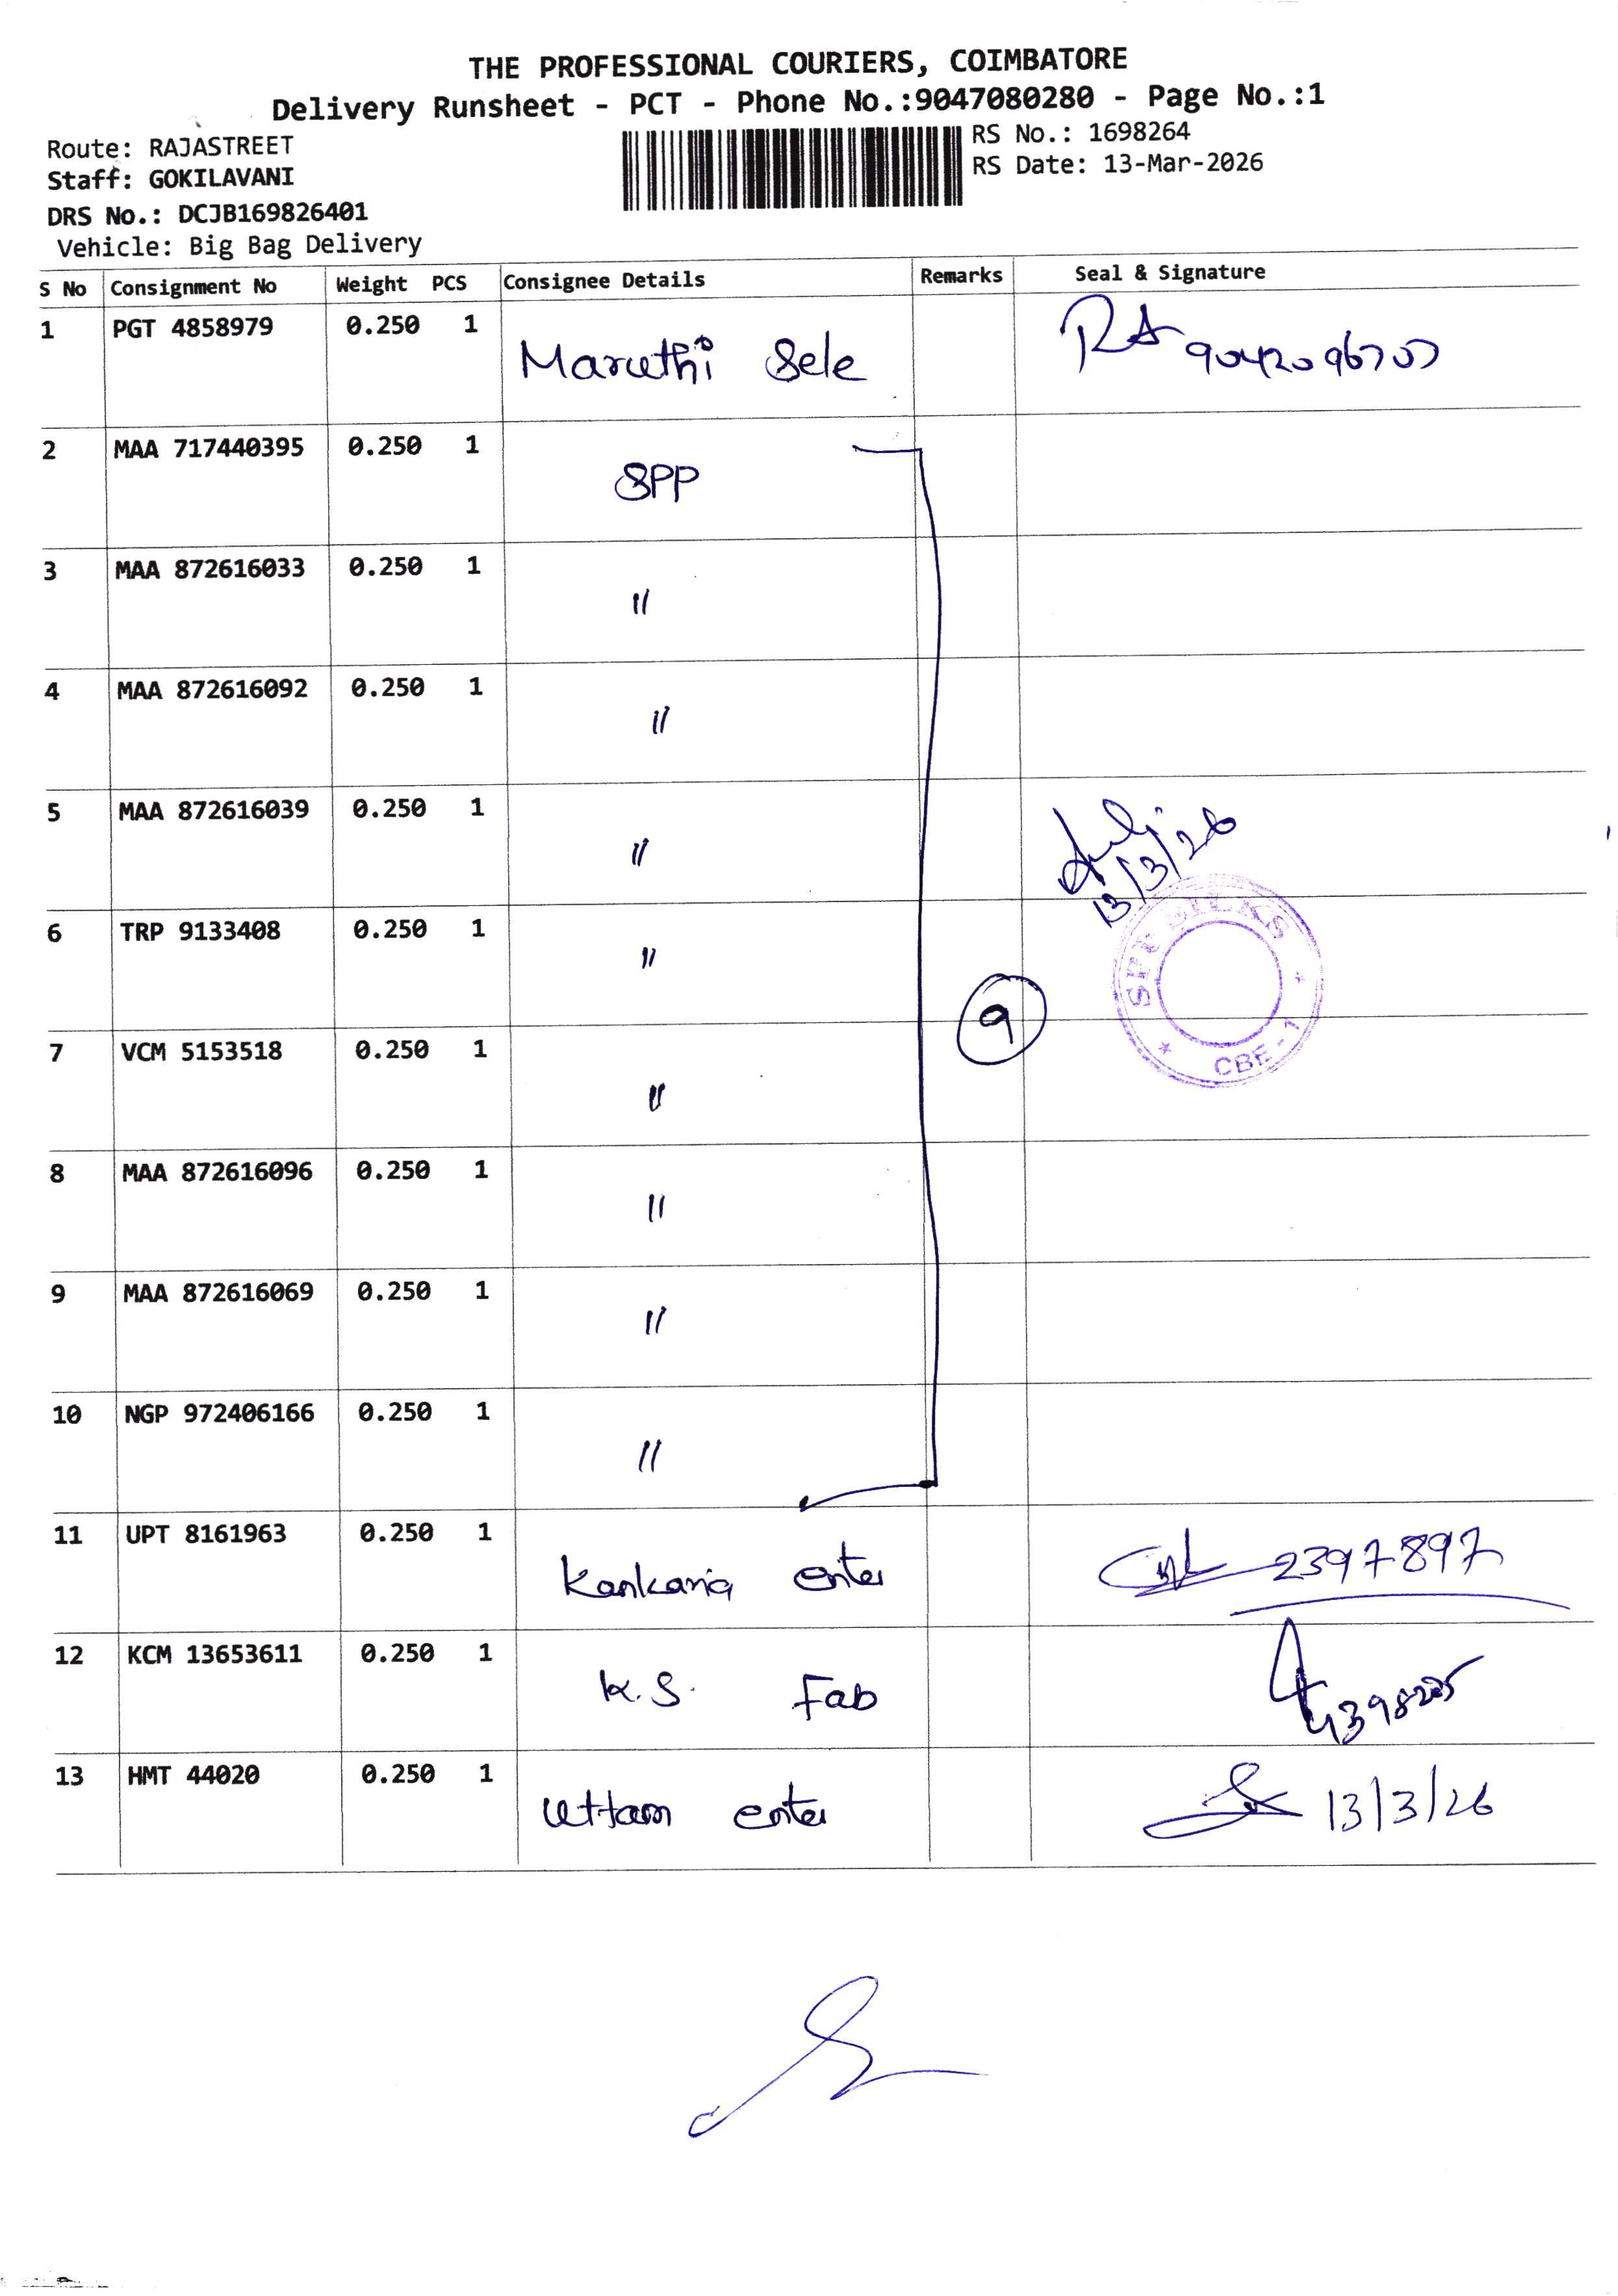 THE PROFESSIONAL COURIERS, COIMBATORE
Delivery Runsheet - PCT - Phone No.:9047080280 - Page No.:1
Route: RAJASTREET
Staff: GOKILAVANI
DRS No.: DCJB169826401
Vehicle: Big Bag Delivery
RS No.: 1698264
RS Date: 13-Mar-2026
S No Consignment No Weight PCS Consignee Details Remarks Seal & Signature
1 PGT 4858979 0.250 1 Maruthi Sele
2 MAA 717440395 0.250 1 SPP
3 MAA 872616033 0.250 1 "
4 MAA 872616092 0.250 1 "
5 MAA 872616039 0.250 1 " 13/3/26
6 TRP 9133408 0.250 1 "
9
SPP SILKS
CBE - 1
7 VCM 5153518 0.250 1 "
8 MAA 872616096 0.250 1 "
9 MAA 872616069 0.250 1 "
10 NGP 972406166 0.250 1 "
11 UPT 8161963 0.250 1 Kankaria enter 2397897
12 KCM 13653611 0.250 1 K.S. Fab
13 HMT 44020 0.250 1 Uttam enter 13/3/26